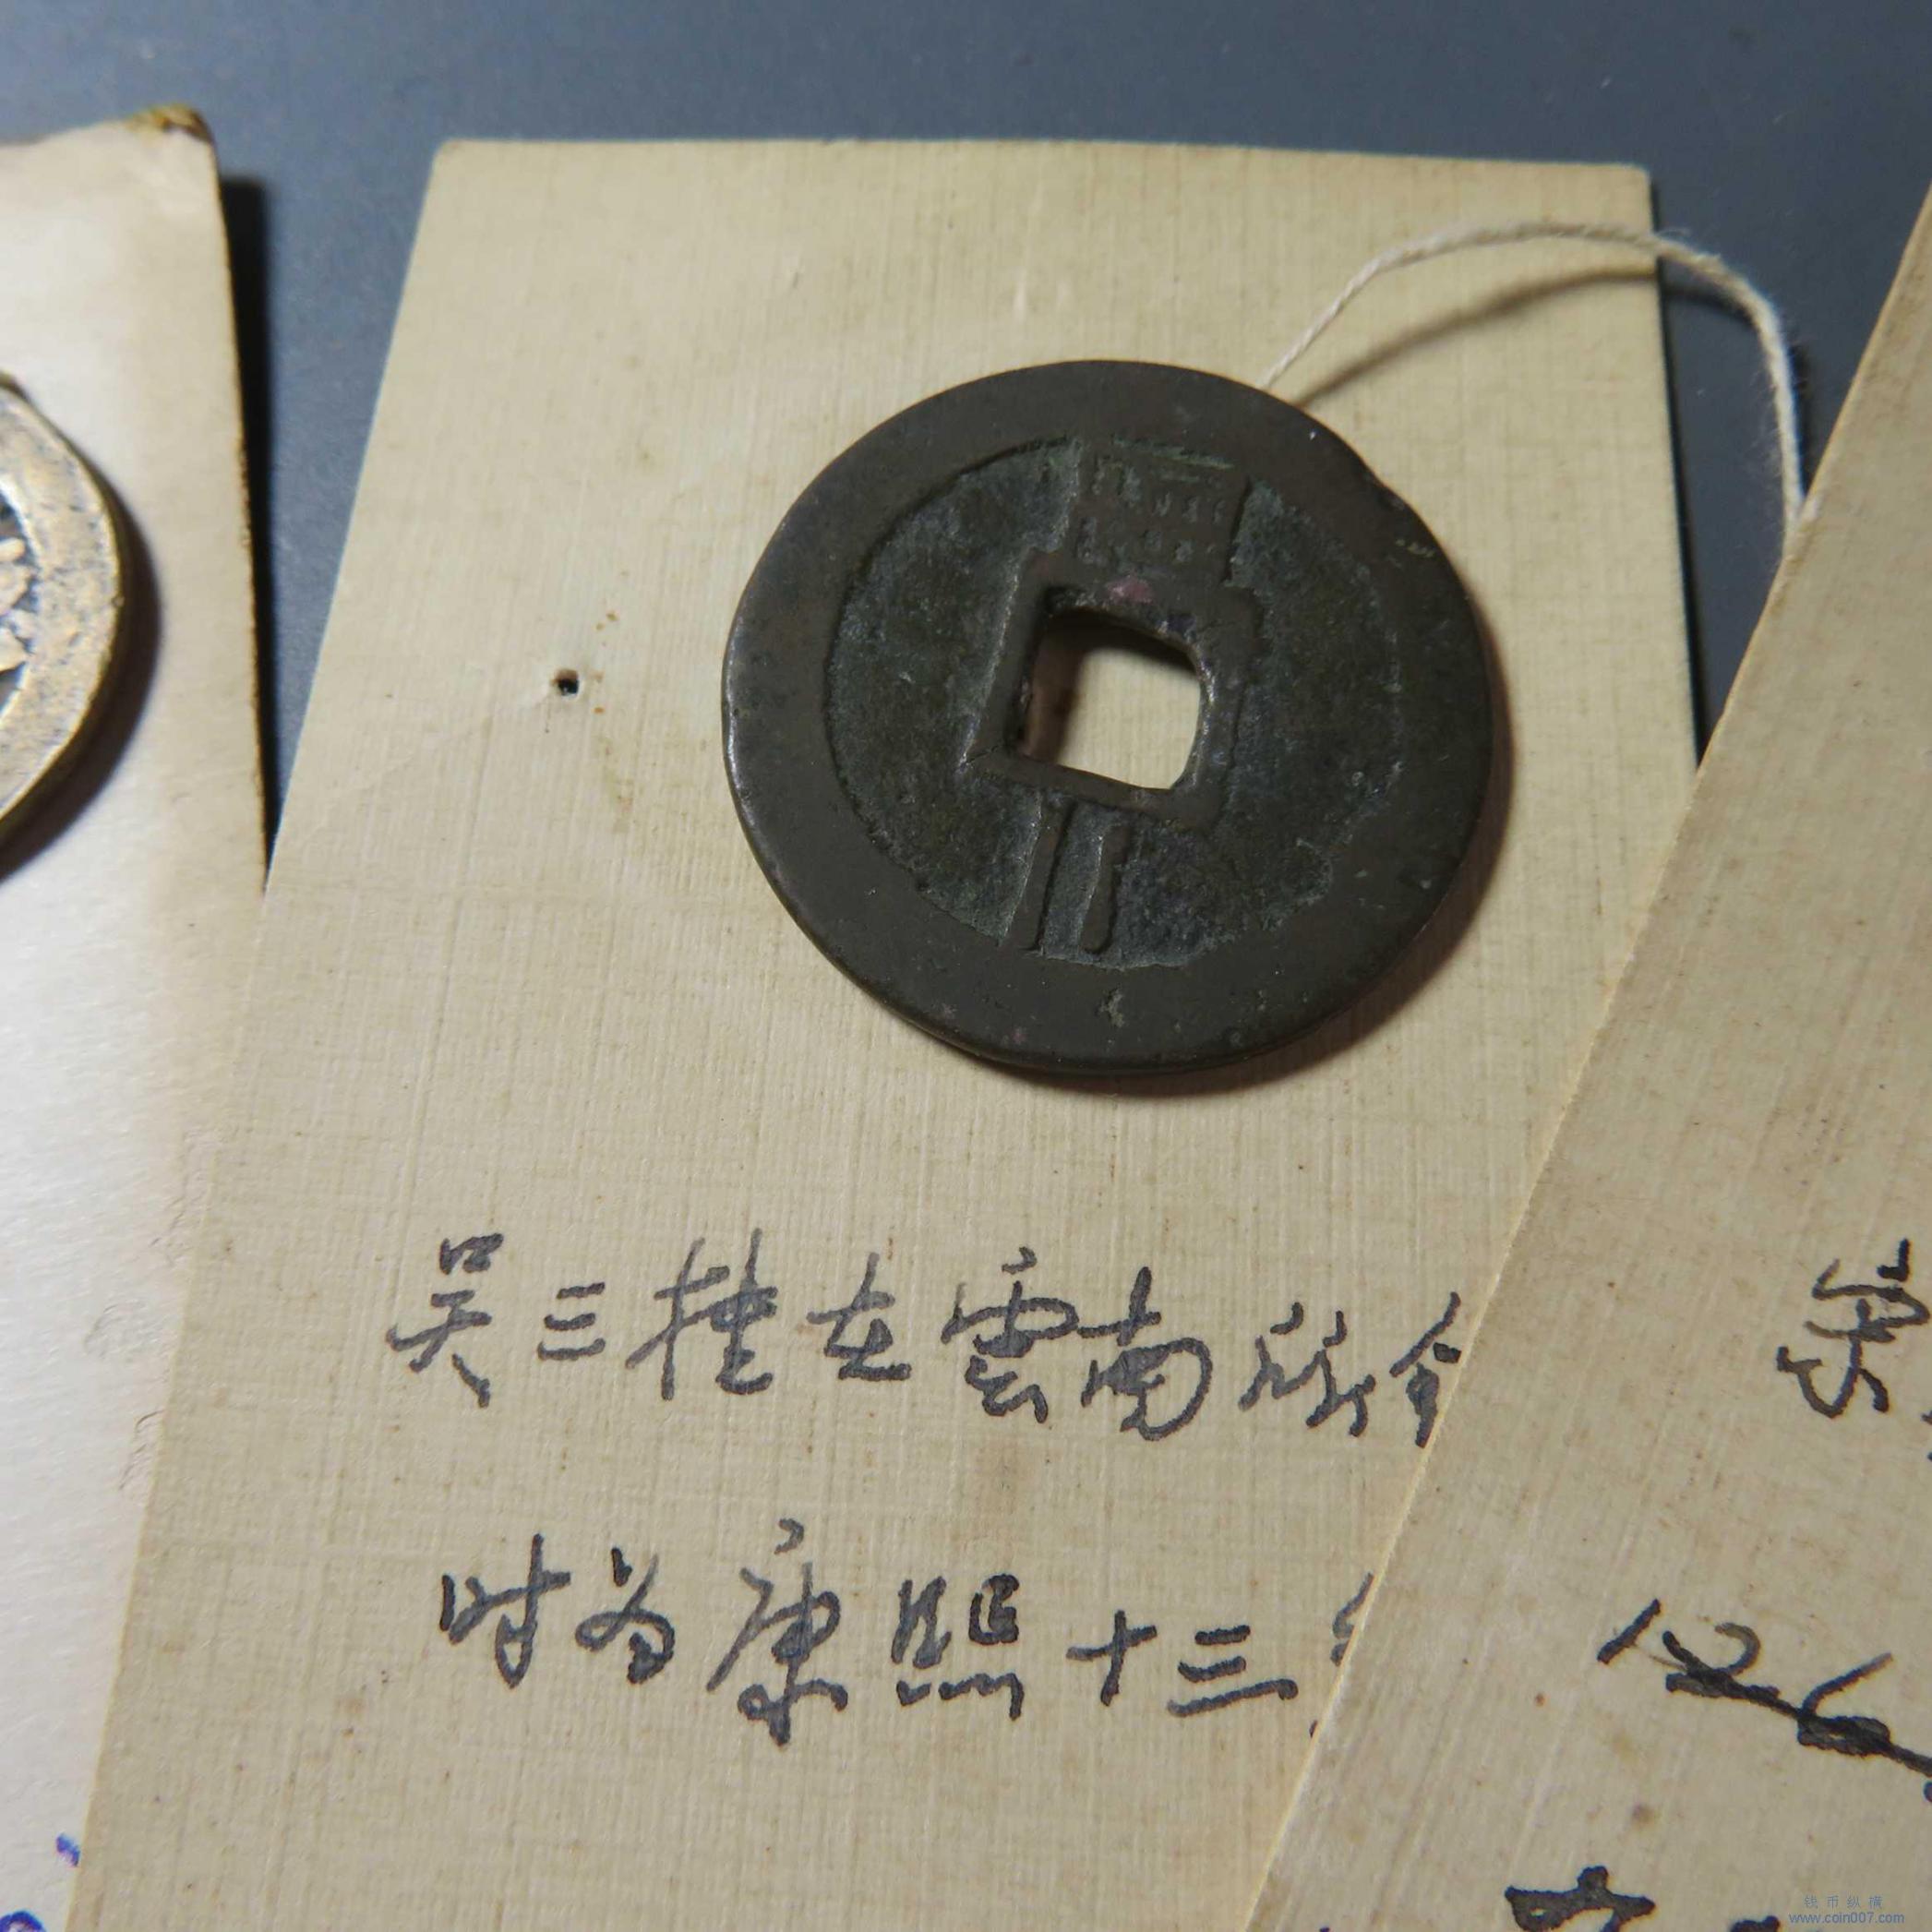 吴三桂在雲南所
时为康熙十三
126
钱币纵横
www.coin007.com